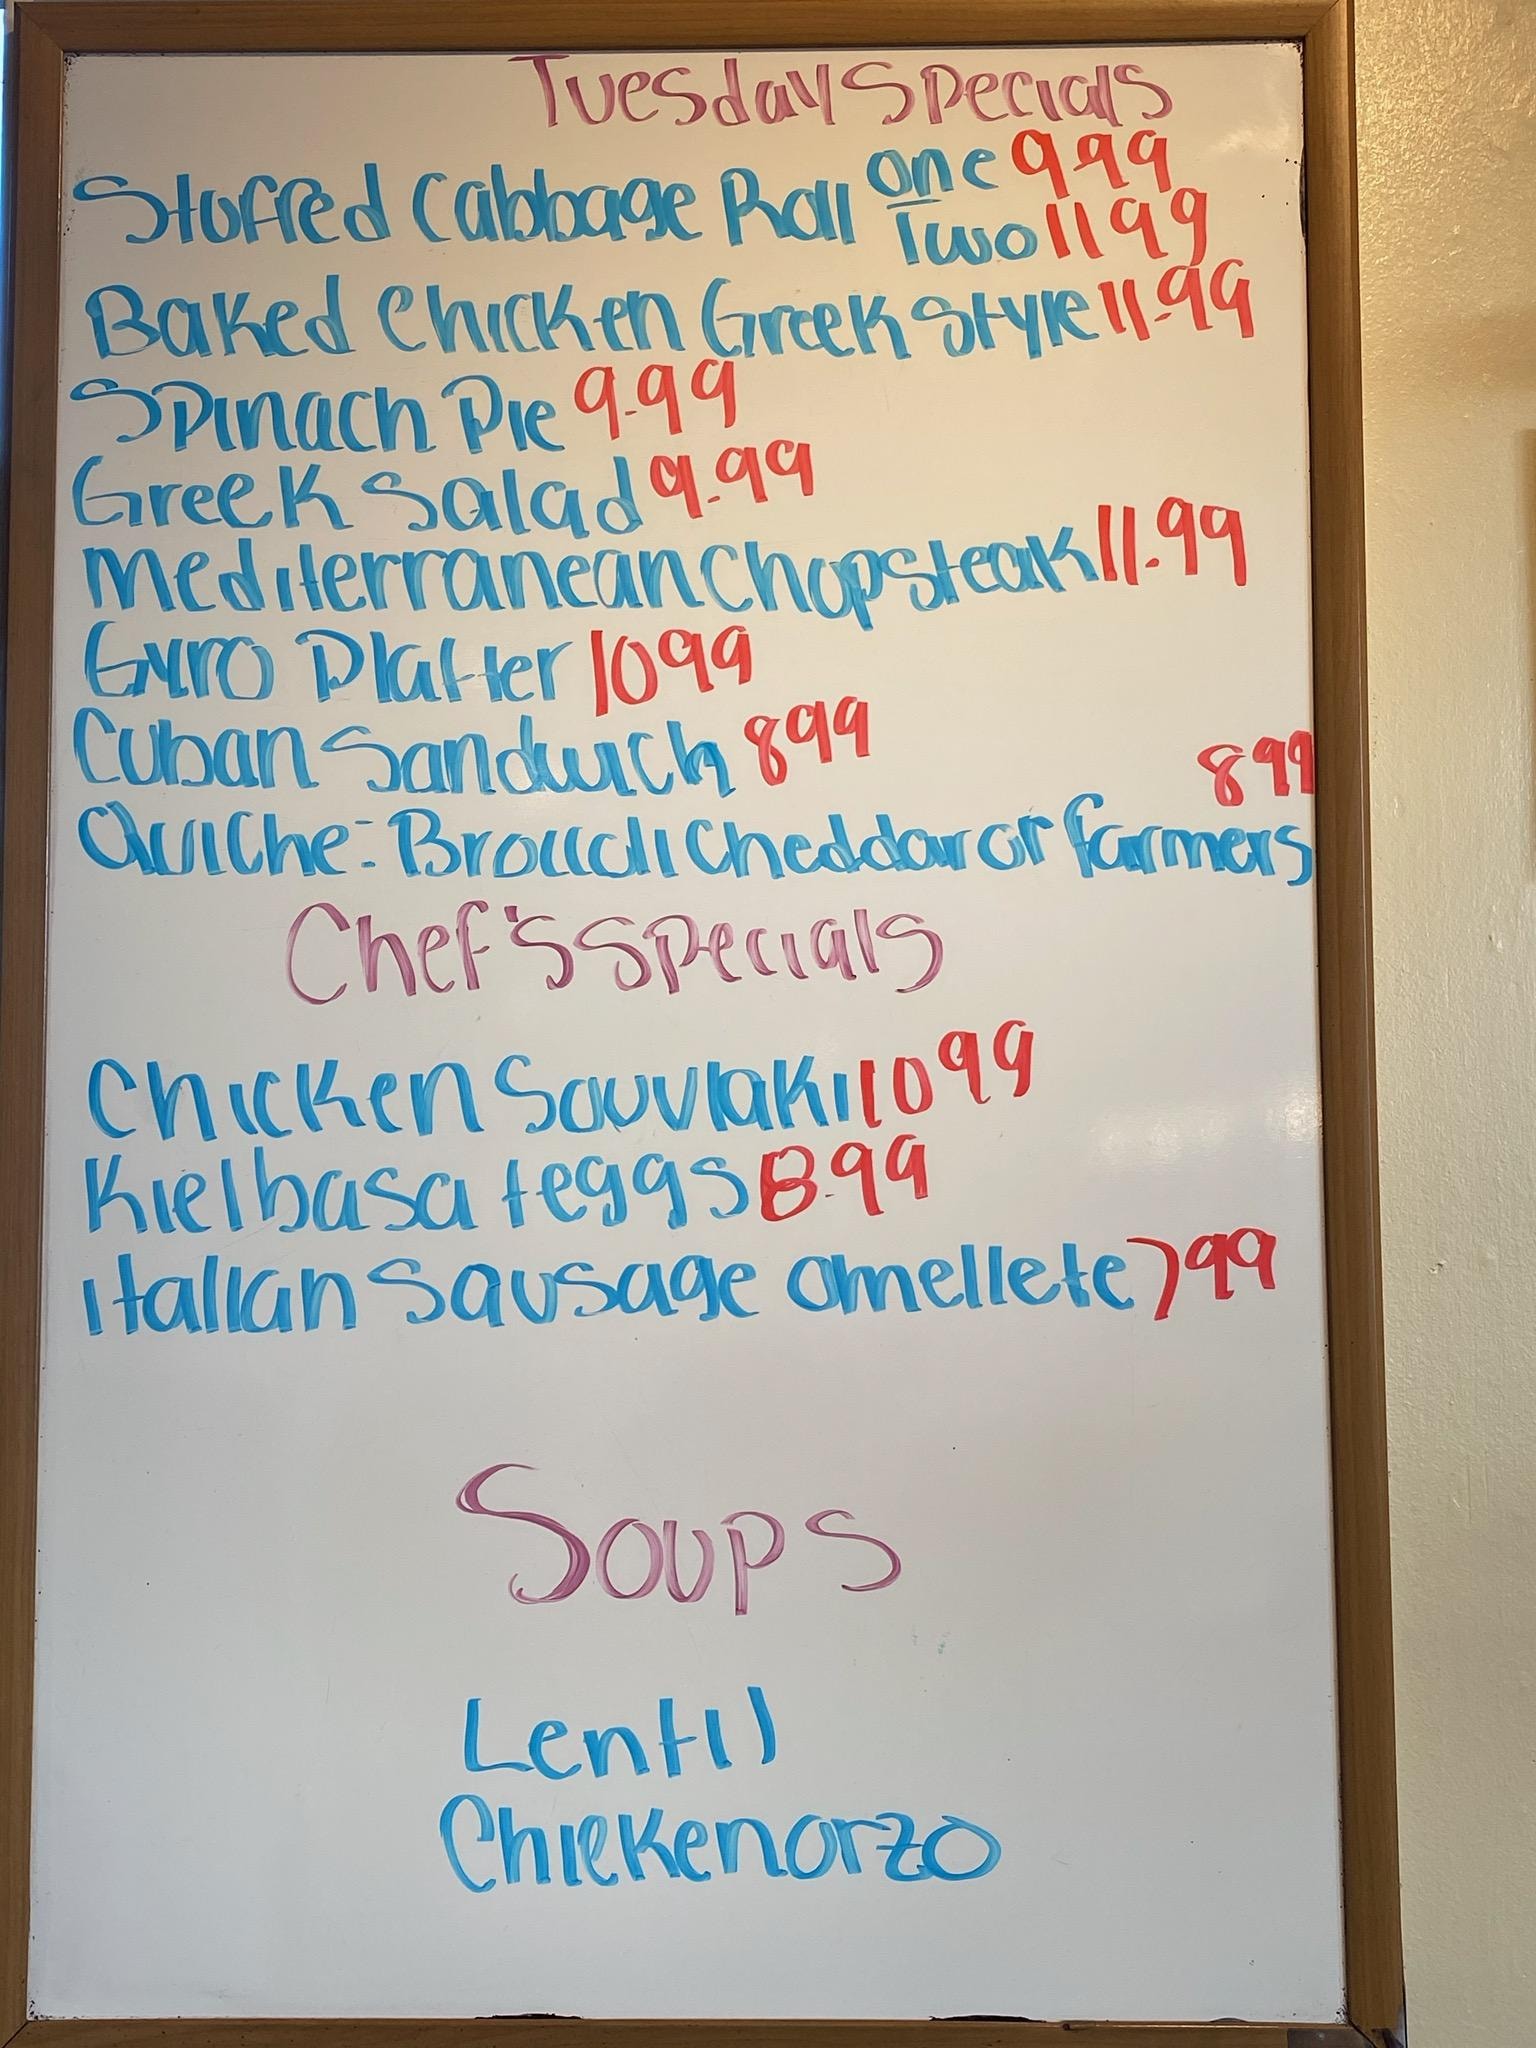 Tuesday Specials
Stuffed Cabbage Roll one 999
Two 1199
Baked Chicken Greek Style 11.99
Spinach Pie 9.99
Greek Salad 9.99
Mediterranean Chopsteak 11.99
Gyro Platter 1099
Cuban Sandwich 899
899
Quiche: Broccoli Cheddar or farmers
Chef's Specials
Chicken Souvlaki 1099
Kielbasa + eggs 8.99
italian Sausage omellete 799
Soups
Lentil
Chicken orzo